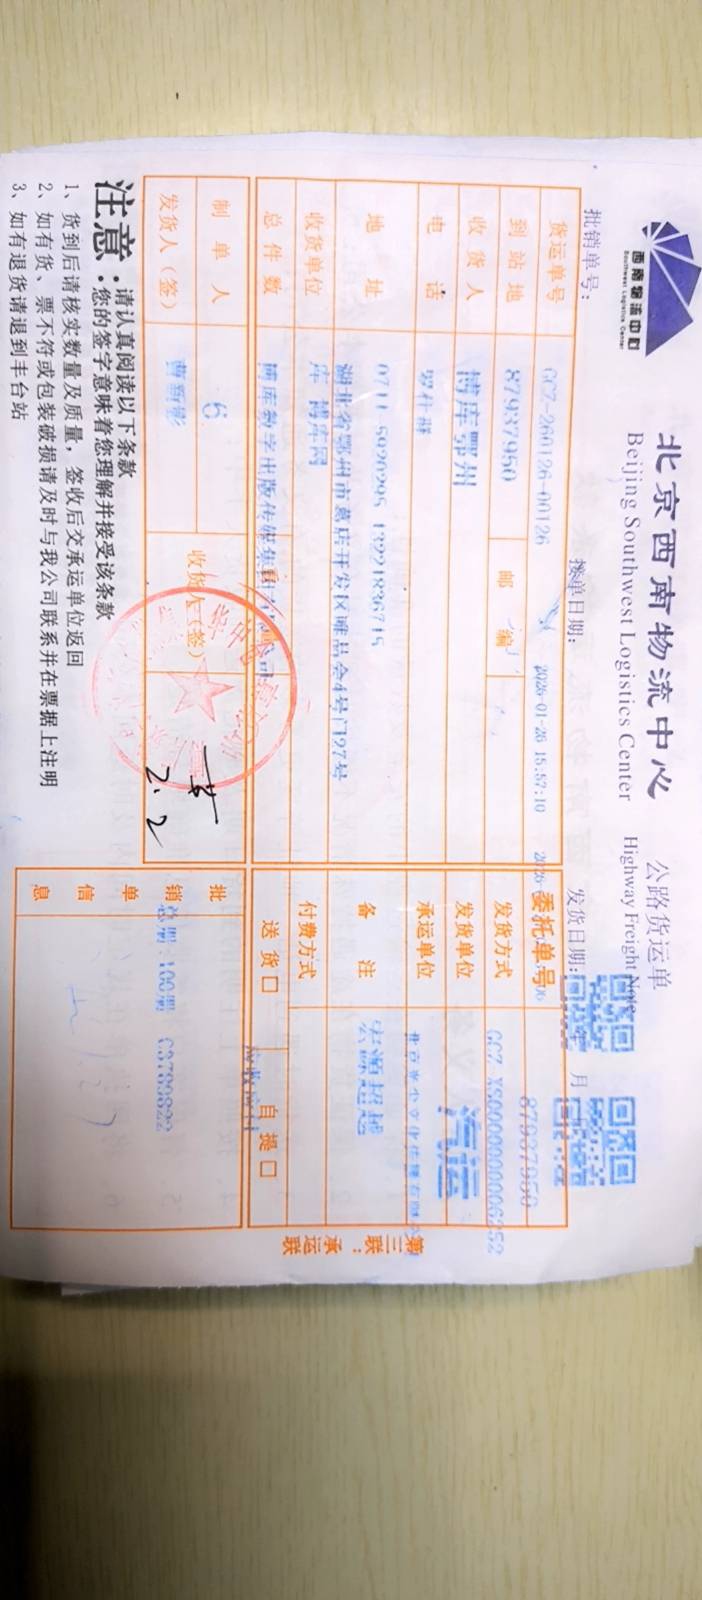 西南物流中心
Southwest Logistics Center
北京西南物流中心 公路货运单
Beijing Southwest Logistics Center Highway Freight Note
批销单号: 接单日期: 发货日期: 年 月
货运单号 GCZ-260126-00126 2026-01-26 15:57:10 委托单号 87937950
到站地 87937950 邮编 发货方式 GCZ-XS0000000006252
收货人 博库鄂州 发货单位 汽运
电话 罗仕群 承运单位
地址 0711-5920295 13221836715 备注 宏源超越
湖北省鄂州市葛店开发区唯品会4号门27号
收货单位 库 博库网 付费方式
总件数 博库数字出版传媒集团有限公司 送货□ 自提□
制单人 6 收货人(签)
发货人(签) 曹新彩 2.2
批销单信息 总册:100册
注意:请认真阅读以下条款
您的签字意味着您理解并接受该条款
1、货到后请核实数量及质量,签收后交承运单位返回
2、如有货、票不符或包装破损请及时与我公司联系并在票据上注明
3、如有退货请退到丰台站
第三联:承运联